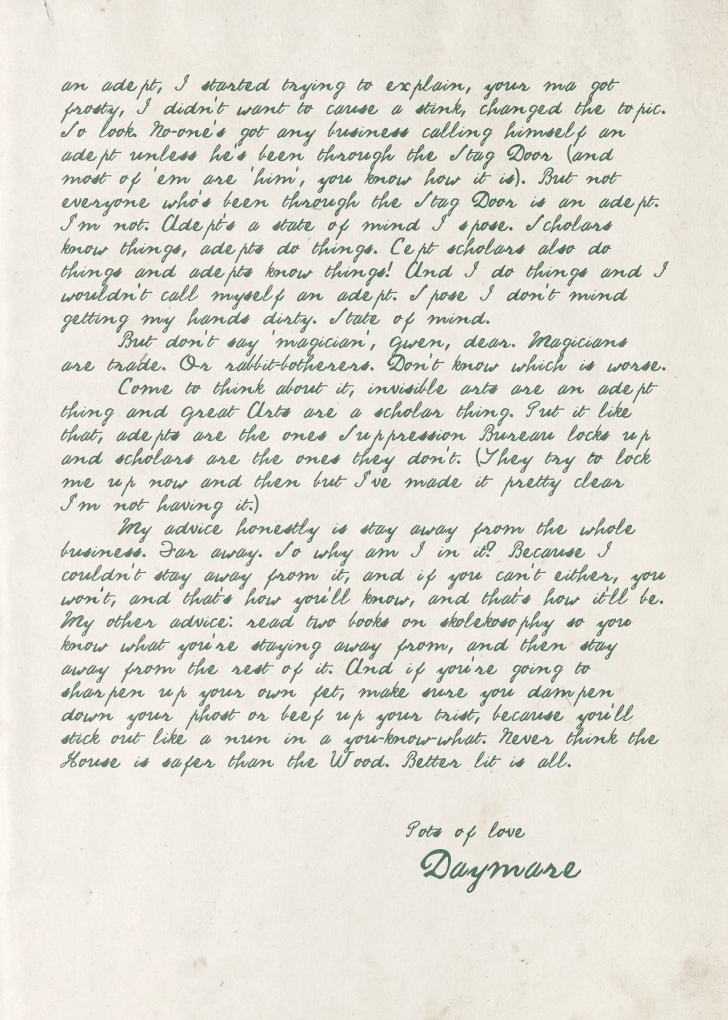 an adept, I started trying to explain, your ma got
frosty, I didn't want to cause a stink, changed the topic.
So look. No-one's got any business calling himself an
adept unless he's been through the Stag Door (and
most of 'em are 'him', you know how it is). But not
everyone who's been through the Stag Door is an adept.
I'm not. Adept's a state of mind I spose. Scholars
know things, adepts do things. Cept scholars also do
things and adepts know things! And I do things and I
wouldn't call myself an adept. Spose I don't mind
getting my hands dirty. State of mind.
But don't say 'magician', Gwen, dear. Magicians
are trade. Or rabbit-botherers. Don't know which is worse.
Come to think about it, invisible arts are an adept
thing and Great Arts are a scholar thing. Put it like
that, adepts are the ones Suppression Bureau locks up
and scholars are the ones they don't. (They try to lock
me up now and then but I've made it pretty clear
I'm not having it.)
My advice honestly is stay away from the whole
business. Far away. So why am I in it? Because I
couldn't stay away from it, and if you can't either, you
won't, and that's how you'll know, and that's how it'll be.
My other advice: read two books on skolekosophy so you
know what you're staying away from, and then stay
away from the rest of it. And if you're going to
sharpen up your own fet, make sure you dampen
down your phost or beef up your trist, because you'll
stick out like a nun in a you-know-what. Never think the
House is safer than the Wood. Better lit is all.
Pots of love
Daymare